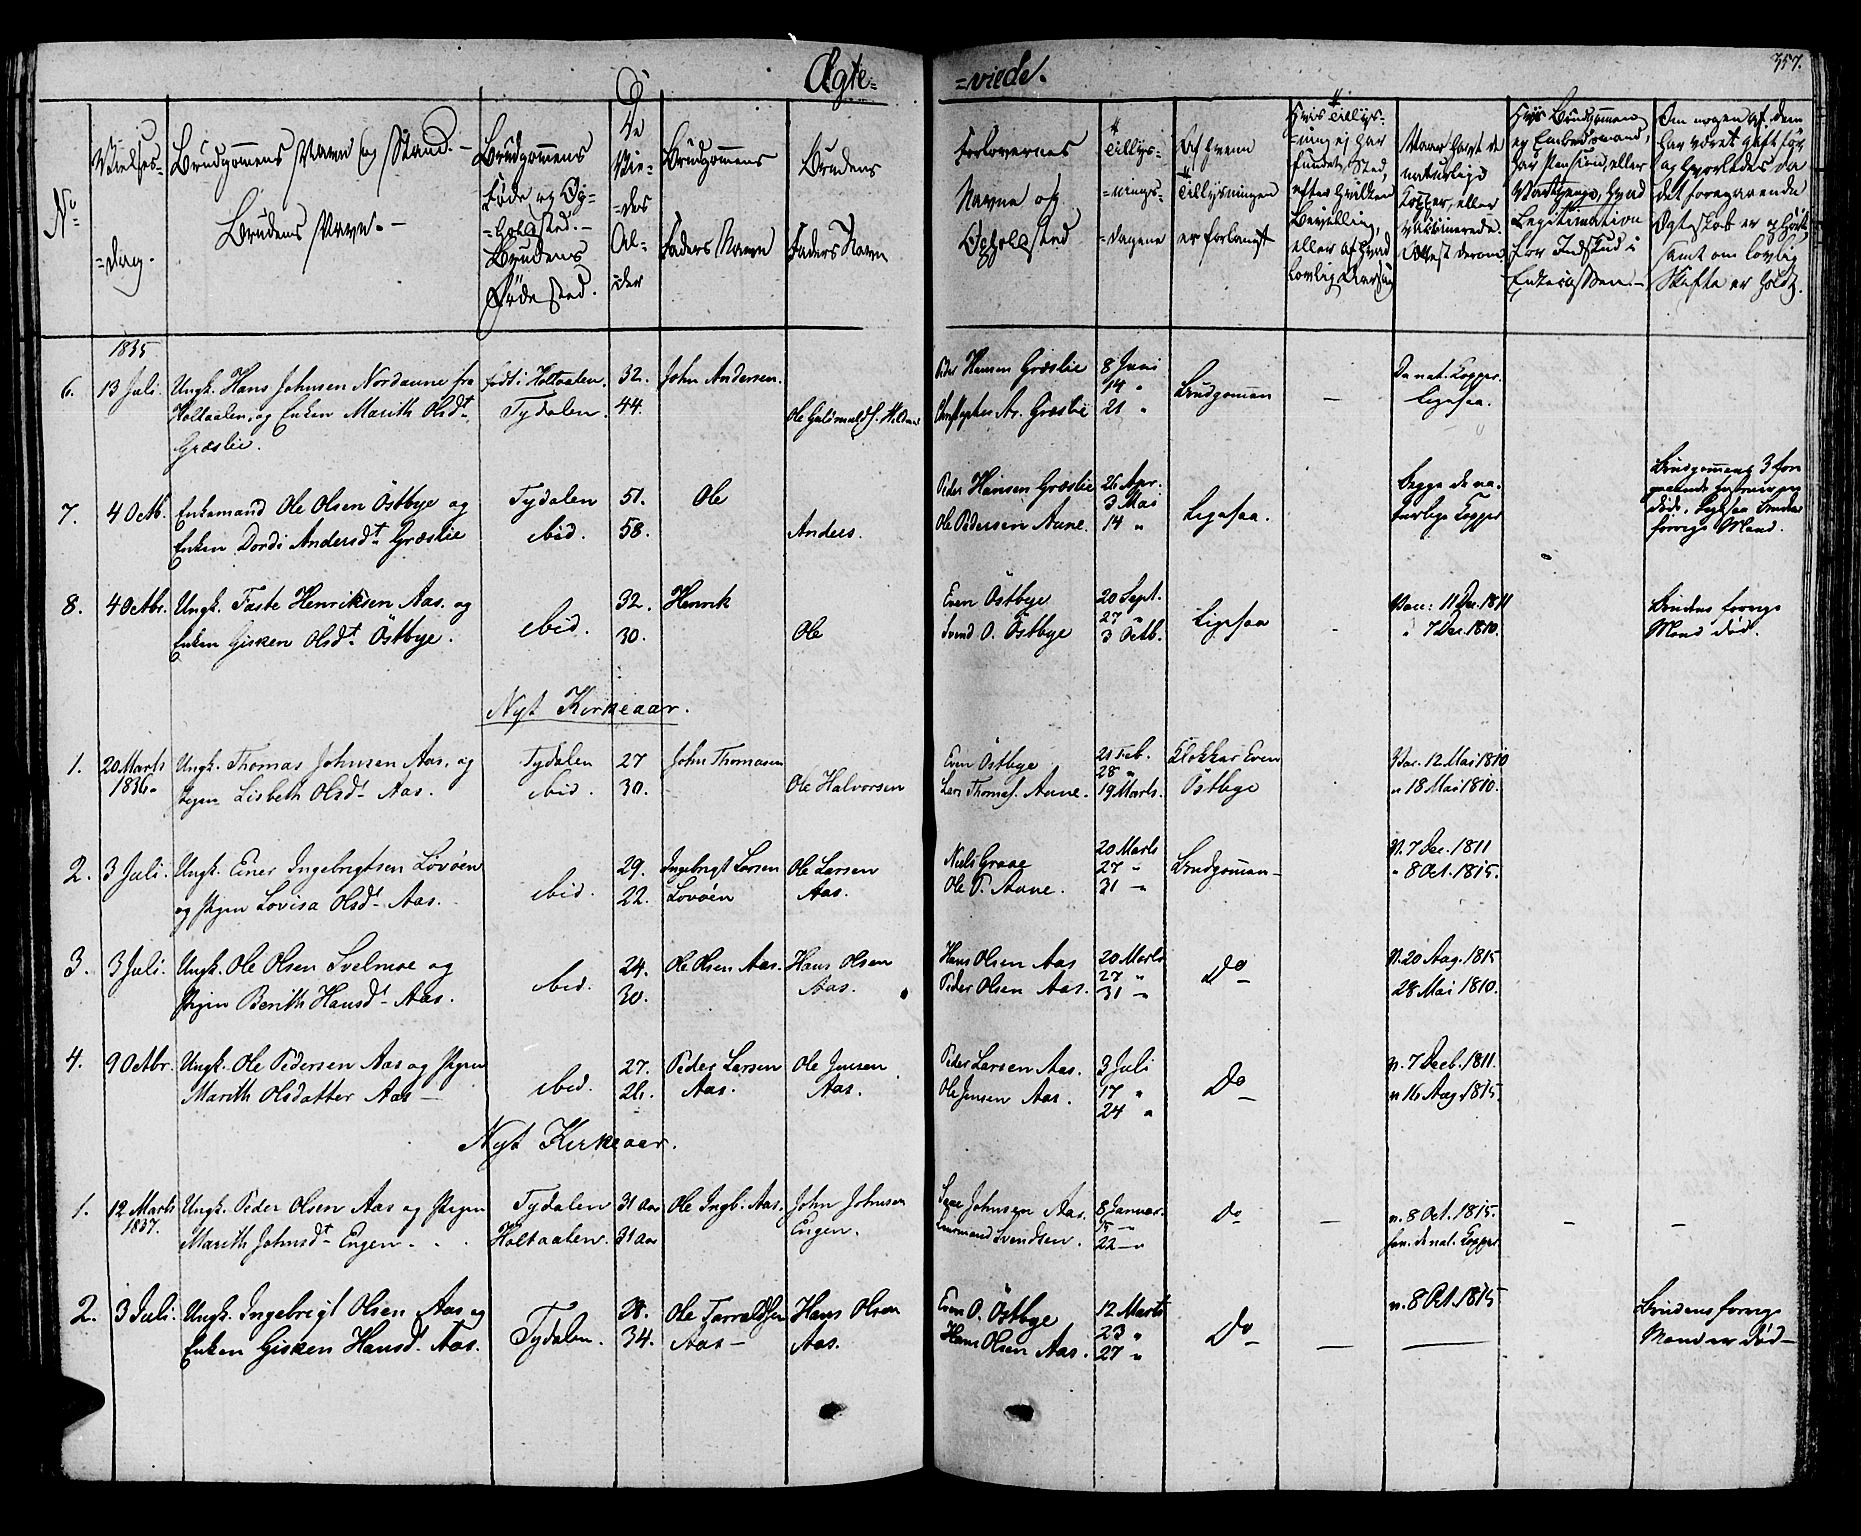 Ægte=
=viede.
357.
No
Vielses=
=dag.
Brudgommens Navn og Stand. –
Brudens Navn. –
Brudgommens
Føde og Op=
=holdsted. –
Brudens
Fødested.
De
Vie=
=des
Al=
der
Brudgommens
Faders Navn
Brudens
Faders Navn
Forlovernes
Navne og
Opholdsted
Tillys=
=nings=
=dagene
Af hvem
Tillysningen
er forlangt
Hvis Tillys=
=ning ej har
fundet Sted,
efter hvilken
Bevilling,
eller af hvad
lovlig Aarsag
Naar havt de
naturlige
Kopper, eller
vaccinerede.
Attest derom
Hvis Brudgommen
er Embedsmand,
har Pension, eller
Vartpenge, hvad
Legitimation
for Indskud i
Enkecassen. –
Om nogen af dem
har været gift før
og hvorledes da
det foregaaende
Ægteskab er ophørt,
samt om lovlig
Skifte er holdt.
1835
6. 13 Juli. Ungk. Hans Johnsen Nordaune fra født i Holtaalen. 32. John Andersen. Peder Hansen Græslie 8 Juni Da nat. Kopper.
Holtaalen, og Enken Marith Olsdt Tydalen. 44. Ole Guldbrands. Christopher Ar. Græslie 14 " 21 " Brudgommen – Ligesaa.
Græslie.
7. 4 Octb. Enkemand Ole Olsen Östbye og Tydalen 51. Ole Peder Hansen Græslie 26 Apr. 3 Mai Ligesaa. Begge de na- Brudgommens 3 for
Enken Dordi Andersdt Græslie ibid. 58. Anders. Ole Pedersen Aune 14 " turlige Kopper
død, Ligesaa Brudens
forrige Mand.
8. 4 Octbr. Ungk. Faste Henriksen Aas. og ibid. 32. Henrik Even Östbye 20 Sept. Ligesaa Vacc: 11 Dec. 1811 Brudens forrige
Enken Gisken Olsdt Östbye. 30. Ole Svend O. Östbye 27 " 3 Octb. " 7 Dec. 1810. Mand død.
Nyt Kirkeaar.
1. 20 Marts Ungk. Thomas Johnsen Aas. og Tydalen 27 John Thomasen Even Östbye 21 Feb. Klokker Even Vac. 12 Mai 1810
1836. Pigen Lisbeth Olsdt Aas. ibid. 30. Ole Halvorsen Lars Thomas. Aune. 28 " 19 Marts. Östbye " 18 Mai 1810.
2. 3 Juli. Ungk. Einer Ingebrigtsen Lövöen ibid. 29. Ingebrigt Larsen Ole Larsen Niels Graae 20 Marts Brudgommen – V. 7 Dec. 1811
og Pigen Lovisa Olsdt Aas. 22. Lövöen Aas. Ole P. Aune. 27 " 31 – " 8 Oct. 1815.
3. 3 Juli. Ungk. Ole Olsen Svelmoe og ibid. 24. Ole Olsen Aas. Hans Olsen Hans Olsen Aas 20 Marts Do V. 20 Aug. 1815
Pigen Berith Hansdt Aas. 30. Aas. Peder Olsen Aas. 27 " 31 – 28 Mai 1810.
4. 9 Octbr. Ungk. Ole Pedersen Aas og Pigen ibid. 27. Peder Larsen Ole Jensen Peder Larsen Aas. 3 Juli Do v. 7 Decb. 1811.
Marith Olsdatter Aas – 26. Aas. Aas. Ole Jensen Aas. 17 " 24 " v. 16 Aug. 1815.
Nyt Kirkeaar.
1. 12 Marts Ungk. Peder Olsen Aas og Pigen Tydalen 31 Aar Ole Ingb. Aas. John Johnsen Johnsen Aas. 8 Januar. Do – v. 8 Oct. 1815. – –
1837. Marith Johnsdt Engen. Holtaalen. 31 Aar Engen. Svendsen. 15 – 22 – de nat. Kopper
2. 3 Juli. Ungk. Ingebrigt Olsen Aas og Tydalen. 28. Ole Tarraldsen Hans Olsen Even O. Östbye 12 Marts Do – v. 8 Oct. 1815 Brudens forrige
Enken Gisken Hansdt Aas. 34. Aas – Aas. Hans Olsen Aas. 23 " 27 " – Mand er død –